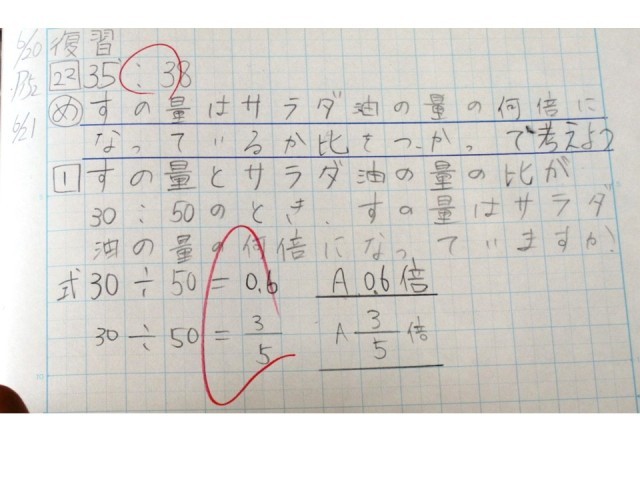 6/20 復習
P.52 22 35:38
6/21 め すの量はサラダ油の量の何倍に
なっているか比をつかって考えよう
1 すの量とサラダ油の量の比が
30:50のとき、すの量はサラダ
油の量の何倍になっていますか?
式 30÷50=0.6 A 0.6倍
30÷50=3/5 A 3/5倍